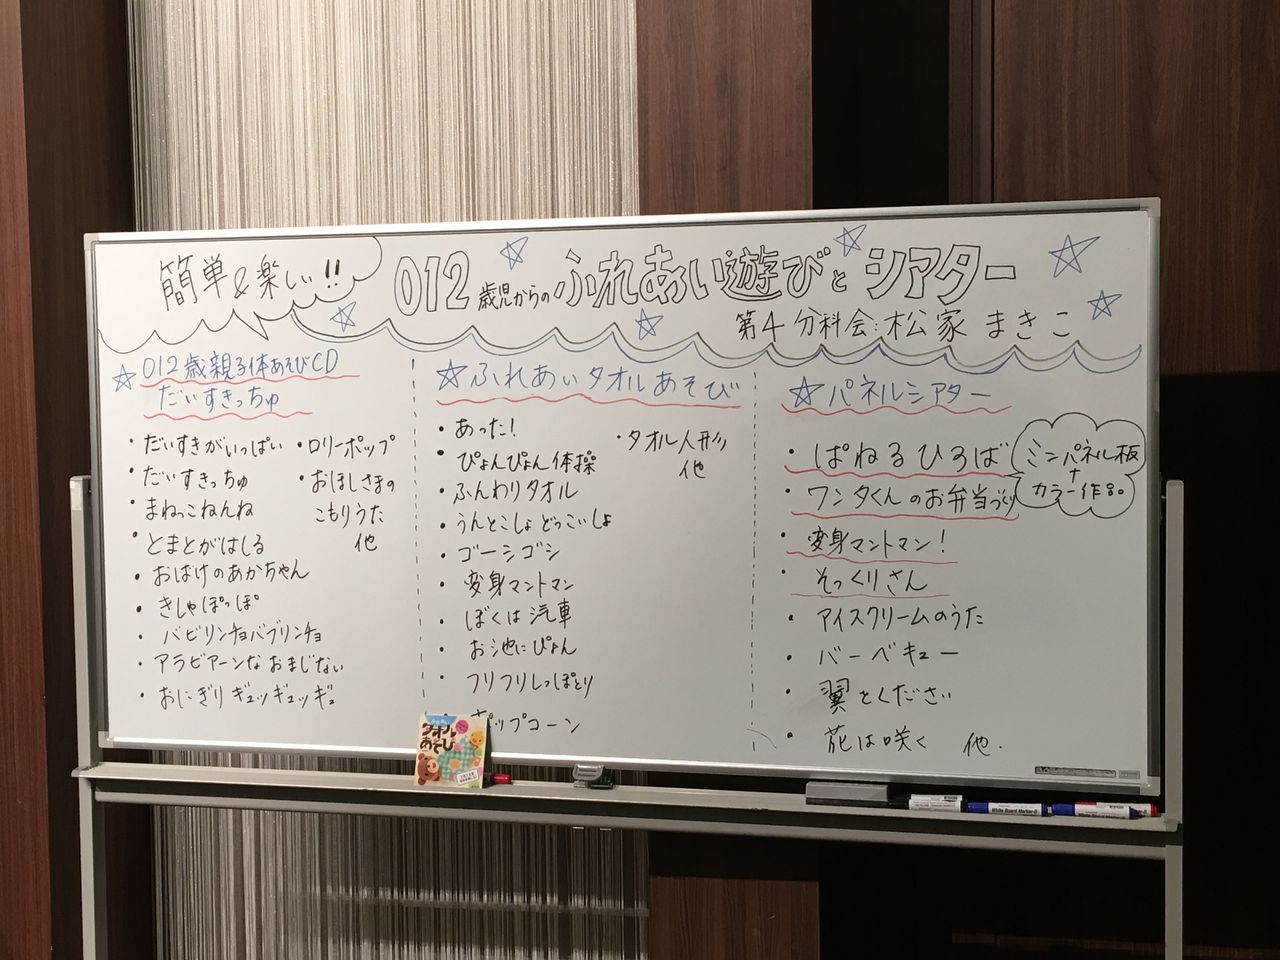 簡単&楽しい!!
012歳児からのふれあい遊びとシアター
第4分科会:松家 まきこ
☆012歳親子体あそびCD
だいすきっちゅ
・だいすきがいっぱい
・だいすきっちゅ
・まねっこねんね
・とまとがはしる
・おばけのあかちゃん
・きしゃぽっぽ
・バビリンチョバブリンチョ
・アラビアーンなおまじない
・おにぎりギュッギュッギュ
・ロリーポップ
・おほしさまの
こもりうた
他
☆ふれあいタオルあそび
・あった!
・ぴょんぴょん体操
・ふんわりタオル
・うんとこしょどっこいしょ
・ゴーシゴシ
・変身マントマン
・ぼくは汽車
・お池にぴょん
・フリフリしっぽとり
ポップコーン
・タオル人形
他
☆パネルシアター
・ぱねるひろば
・ワンタくんのお弁当づくり
・変身マントマン!
・そっくりさん
・アイスクリームのうた
・バーベキュー
・翼をください
・花は咲く 他.
ミニパネル板
+
カラー作品
タオル
あそび
White Board Marker